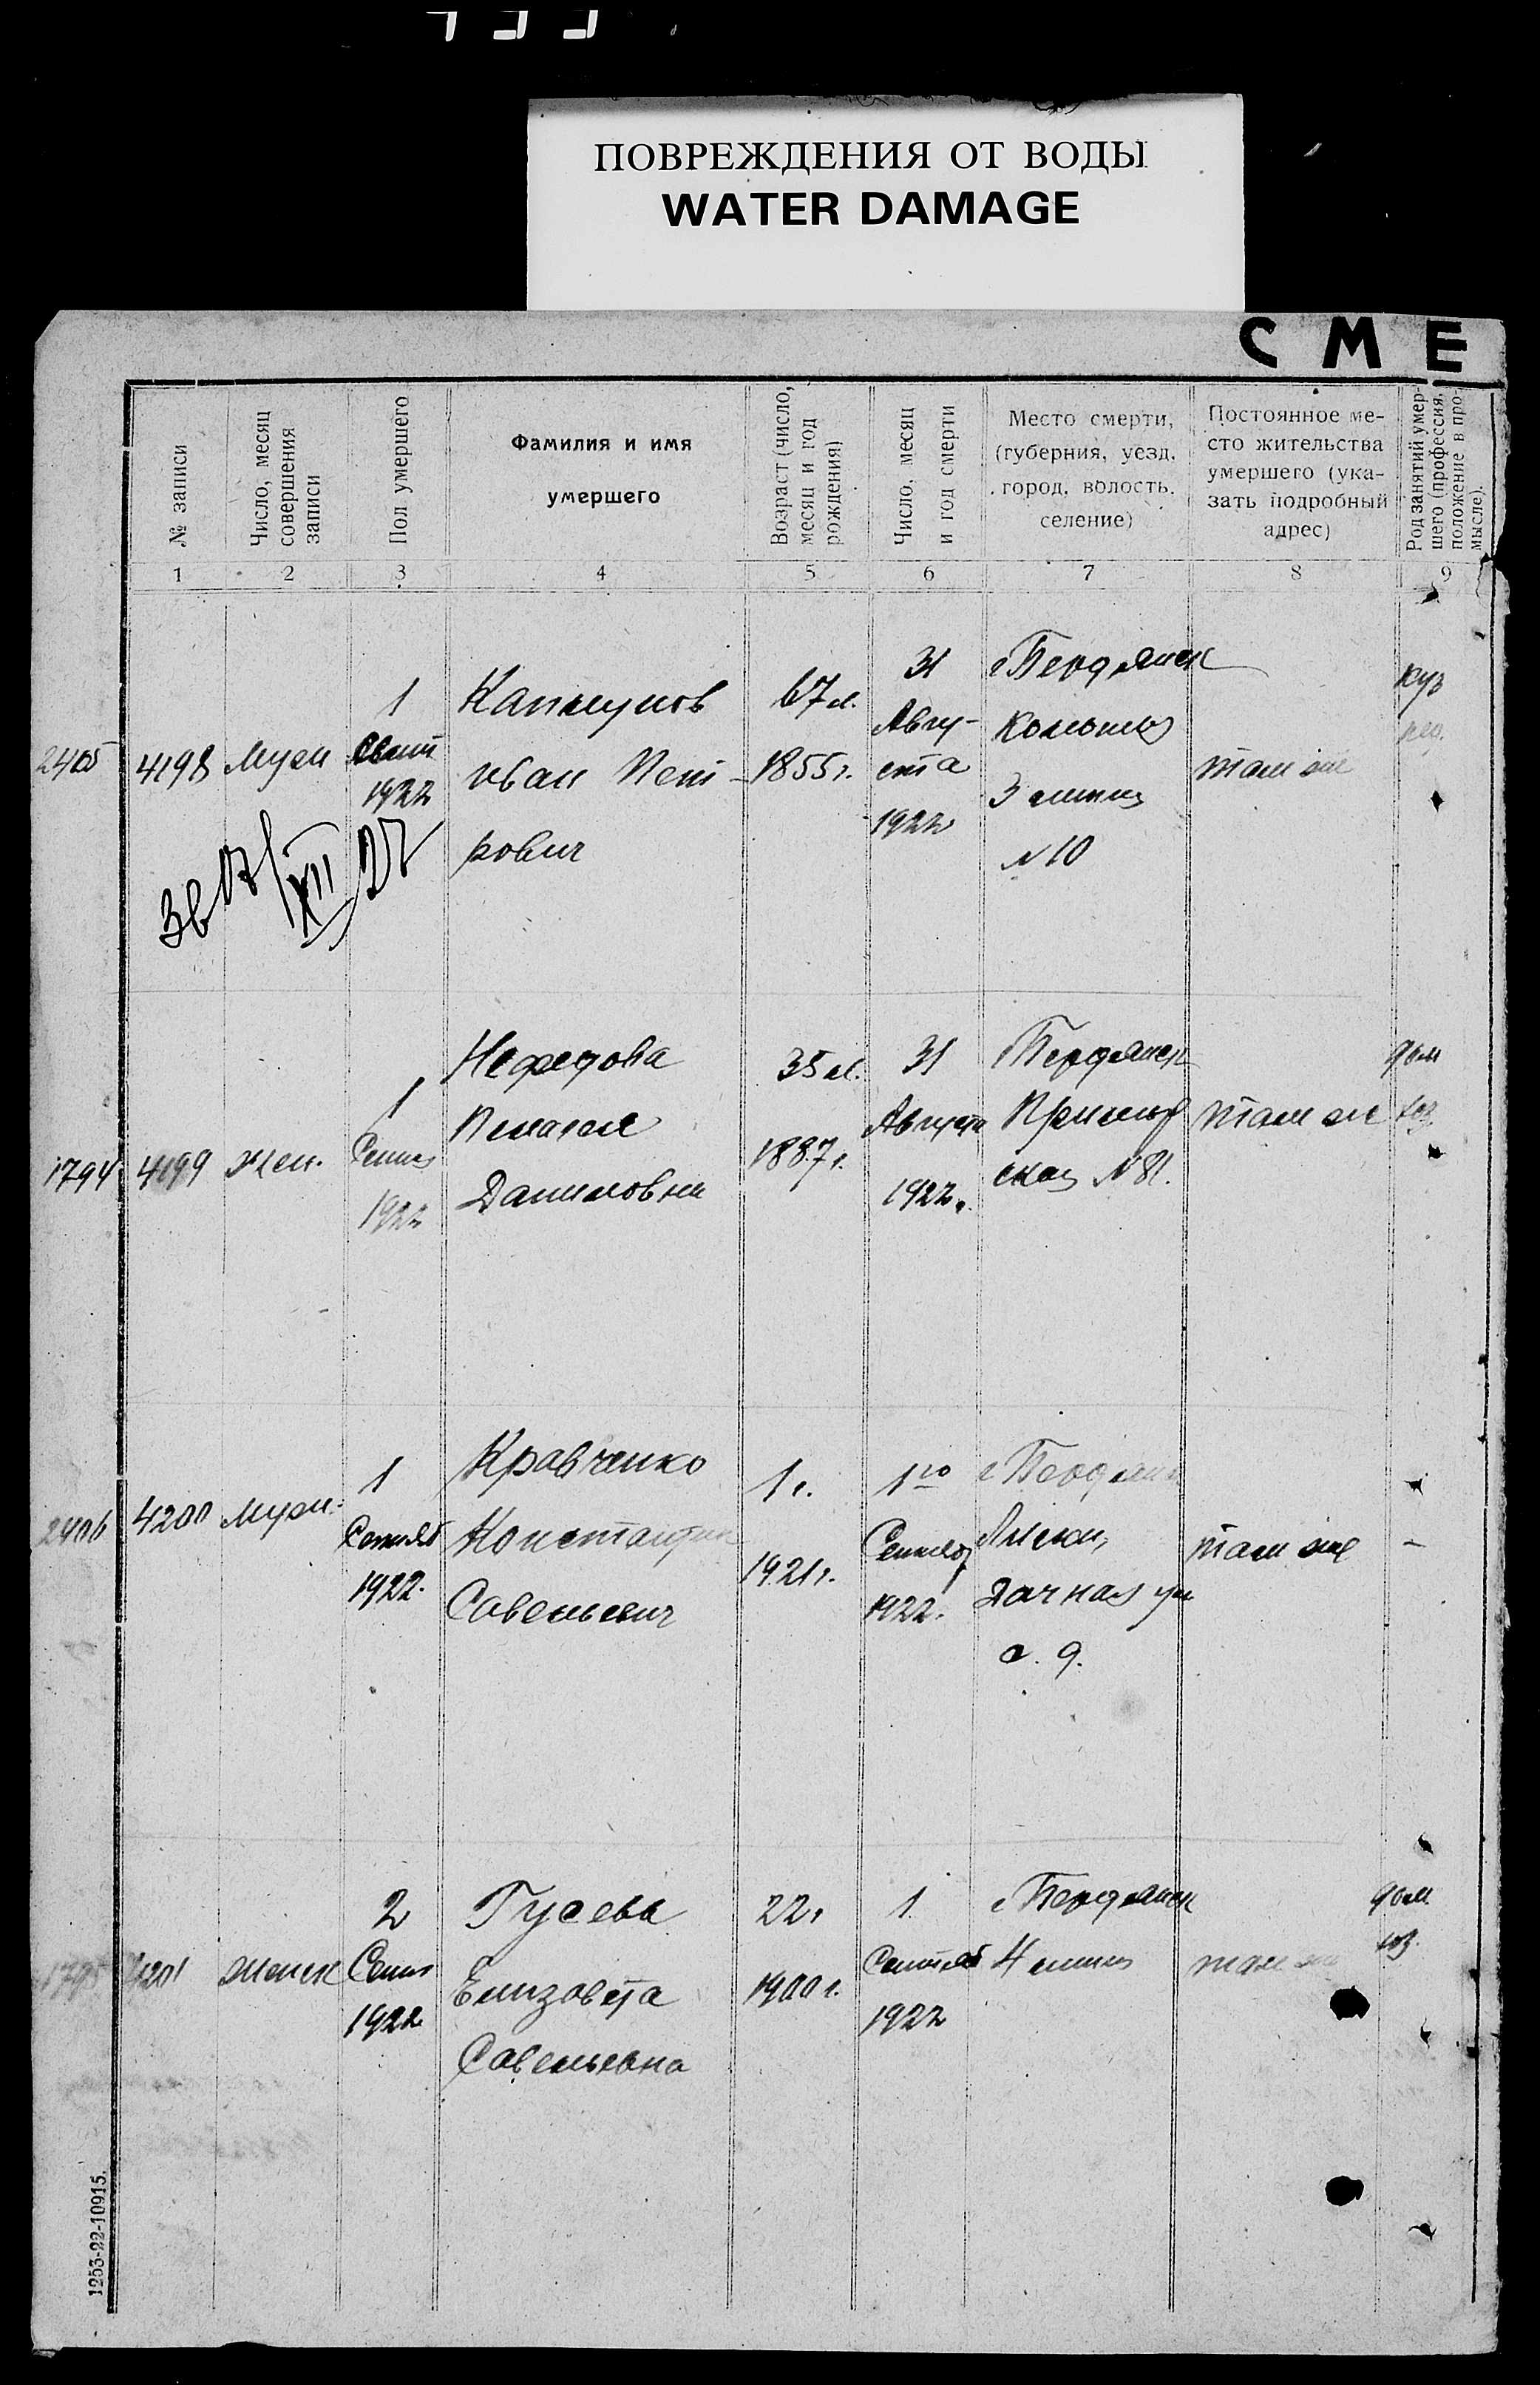 ПОВРЕЖДЕНИЯ ОТ ВОДЫ
WATER DAMAGE
С М Е
№ записи
Число, месяц
совершения
записи
Пол умершего
Фамилия и имя
умершего
Возраст (число,
месяц и год
рождения)
Число, месяц
и год смерти
Место смерти,
(губерния, уезд,
город, волость,
селение)
Постоянное ме-
сто жительства
умершего (ука-
зать подробный
адрес)
Род занятий умер-
шего (профессия,
положение в про-
мысле).
1 2 3 4 5 6 7 8 9
2405
4198
Муж
1
1922
Иван Пет-
рович
67 л.
1855 г.
31
Авгу-
ста
1922
г Бердянск
Колония
3 линия
№ 10
там же
куз
XII
1794
4199
Жен.
1
1922
Нефедова
Пелагея
Даниловна
35 л.
1887 г.
31
Августа
1922 г.
Бердянск
ская № 81.
там же
дом
хоз.
2406
4200
Муж.
1
Сентяб
1922.
Кравченко
Константин
Савельевич
1 г.
1921 г.
1го
Сентяб
1922.
г Бердянск
Лиски,
Дачная ул
д. 9.
там же
-
1795
4201
Женск
2
Сент
1922
Гусева
Елизовета
Савельевна
22 г
1900 г.
1
Сентяб
1922
г Бердянск
4 линия
там же
дом
хоз.
1253-22-10915.